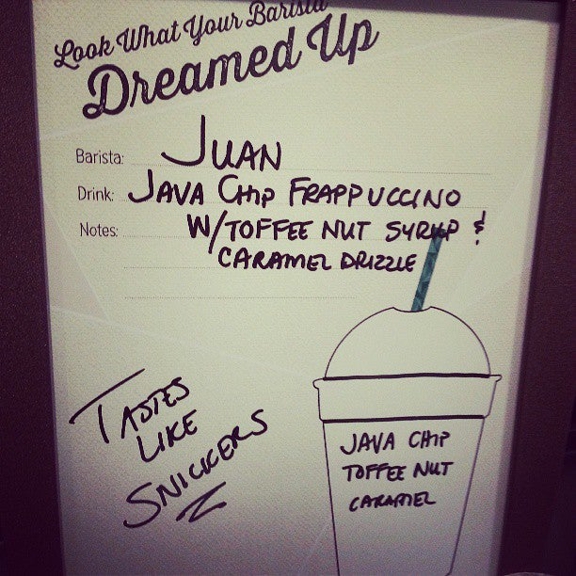 Look What Your Barista
Dreamed Up
Barista: JUAN
Drink: JAVA CHIP FRAPPUCCINO
Notes: W/TOFFEE NUT SYRUP &
CARAMEL DRIZZLE
TASTES
LIKE
SNICKERS
JAVA CHIP
TOFFEE NUT
CARAMEL